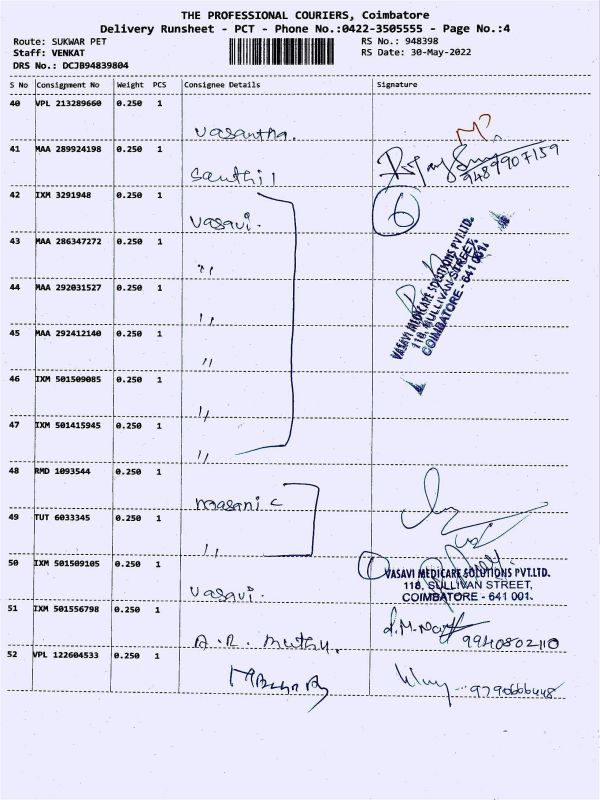 THE PROFESSIONAL COURIERS, Coimbatore
Delivery Runsheet - PCT - Phone No.:0422-3505555 - Page No.:4
Route: SUKWAR PET RS No.: 948398
Staff: VENKAT RS Date: 30-May-2022
DRS No.: DCJB94839804
S No Consignment No Weight PCS Consignee Details Signature
40 VPL 213289660 0.250 1
Vasantha.
41 MAA 289924198 0.250 1
Santhil 9489907159
42 IXM 3291948 0.250 1
Vasavi. 6
43 MAA 286347272 0.250 1
"
44 MAA 292031527 0.250 1
"
VASAVI MEDICARE SOLUTIONS PVT.LTD.
118, SULLIVAN STREET,
COIMBATORE - 641 001.
45 MAA 292412140 0.250 1
"
46 IXM 501509085 0.250 1
"
47 IXM 501415945 0.250 1
"
48 RMD 1093544 0.250 1
masani c
49 TUT 6033345 0.250 1
"
50 IXM 501509105 0.250 1
Vasavi. 1
VASAVI MEDICARE SOLUTIONS PVT.LTD.
118, SULLIVAN STREET,
COIMBATORE - 641 001.
51 IXM 501556798 0.250 1
A.R. Muthu. 9940802110
52 VPL 122604533 0.250 1
9790666448